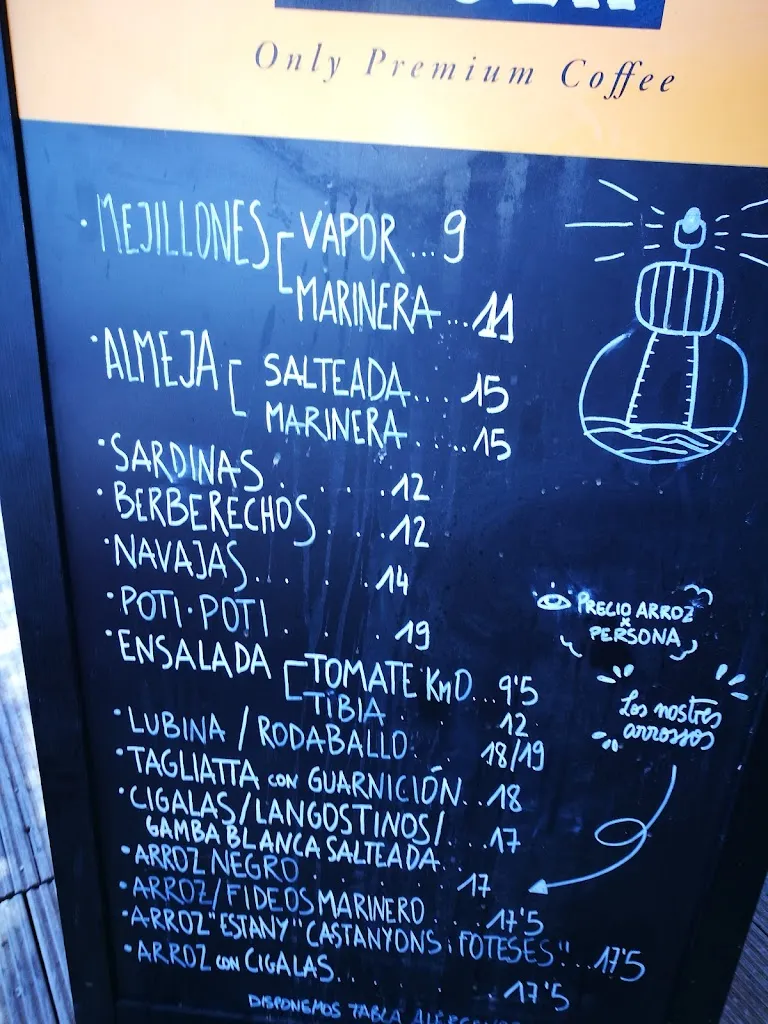 Only Premium Coffee
· MEJILLONES [ VAPOR ... 9
MARINERA ... 11
· ALMEJA [ SALTEADA ... 15
MARINERA ..... 15
· SARDINAS . . . . 12
· BERBERECHOS . . . 12
· NAVAJAS ... . . 14
· POTI·POTI . . . 19
· ENSALADA [ TOMATE KM0 ... 9'5
TIBIA . . 12
· LUBINA / RODABALLO . . 18/19
· TAGLIATTA con GUARNICIÓN ... 18
· CIGALAS/LANGOSTINOS/
GAMBA BLANCA SALTEADA ... 17
· ARROZ NEGRO . . . . 17
· ARROZ/FIDEOS MARINERO . . . 17'5
· ARROZ "ESTANY" "CASTANYONS i FOTESES" ... 17'5
· ARROZ con CIGALAS ... . . 17'5
DISPONEMOS TABLA
PRECIO ARROZ
x
PERSONA
Los nostres
arrossos